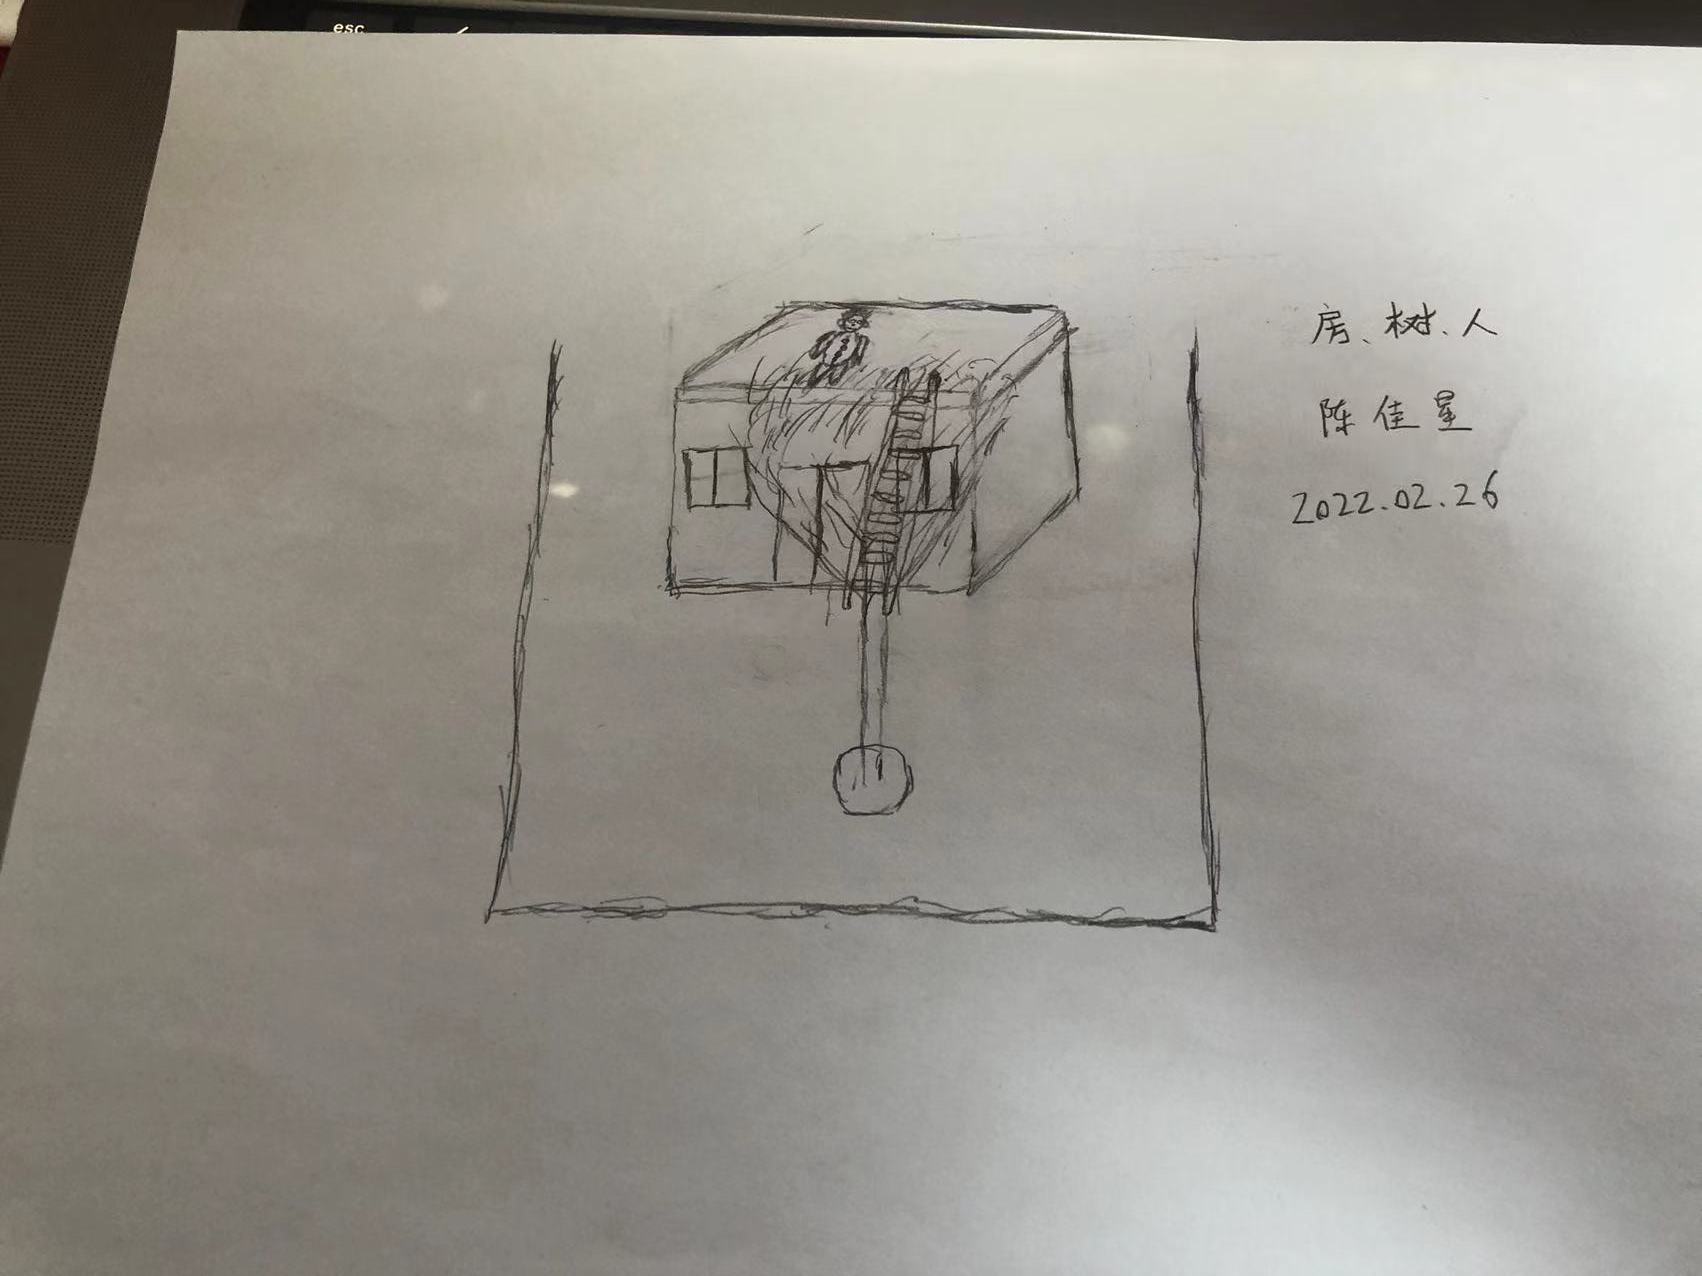 esc
房、树、人
陈佳星
2022.02.26